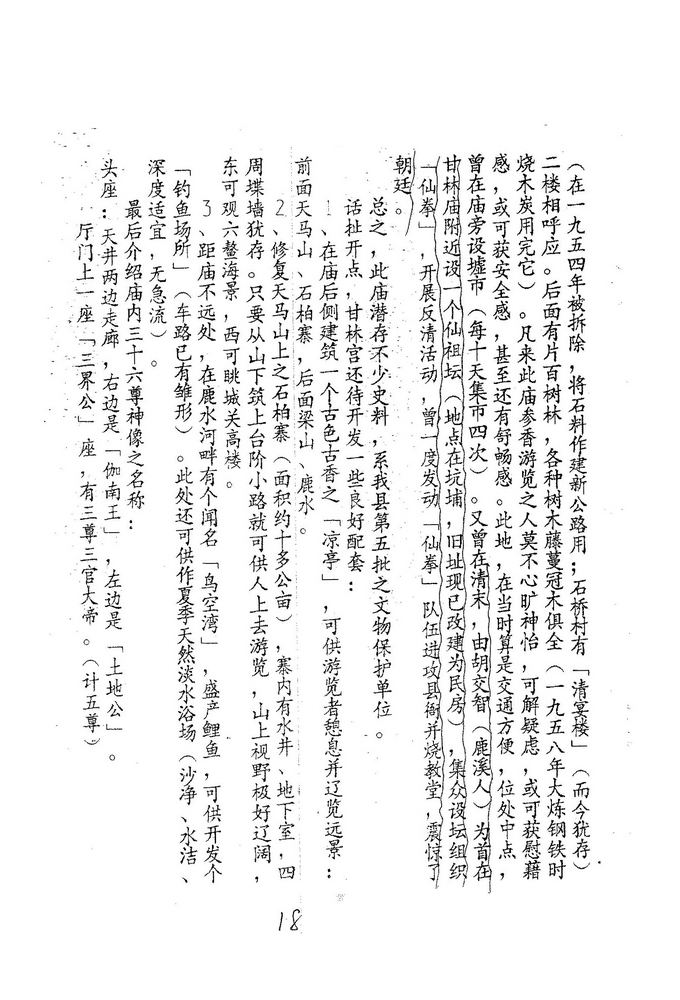 （在一九五四年被拆除，将石料作建新公路用；石桥村有「清宴楼」（而今犹存）
二楼相呼应。后面有片百树林，各种树木藤蔓冠木俱全（一九五八年大炼钢铁时
烧木炭用完它）。凡来此庙参香游览之人莫不心旷神怡，可解疑虑，或可获慰藉
感，或可获安全感，甚至还有舒畅感。此地，在当时算是交通方便，位处中点，
曾在庙旁设墟市（每十天集市四次）。又曾在清末，由胡交智（鹿溪人）为首在
甘林庙附近设一个仙祖坛（地点在坑埔，旧址现已改建为民房），集众设坛组织
「仙拳」，开展反清活动，曾一度发动「仙拳」队伍进攻县衙并烧教堂，震惊了
朝廷。
总之，此庙潜存不少史料，系我县第五批之文物保护单位。
话扯开点，甘林宫还待开发一些良好配套：
1、在庙后侧建筑一个古色古香之「凉亭」，可供游览者憩息并辽览远景：
前面天马山、石柏寨，后面梁山、鹿水。
2、修复天马山上之石柏寨（面积约十多公亩），寨内有水井、地下室，四
周堞墙犹存。只要从山下筑上台阶小路就可供人上去游览，山上视野极好辽阔，
东可观六鳌海景，西可眺城关高楼。
3、距庙不远处，在鹿水河畔有个闻名「乌空湾」，盛产鲤鱼，可供开发个
「钓鱼场所」（车路已有雏形）。此处还可供作夏季天然淡水浴场（沙净、水洁、
深度适宜，无急流）。
最后介绍庙内三十六尊神像之名称：
头座：天井两边走廊，右边是「伽南王」，左边是「土地公」。
厅门上一座「三界公」座，有三尊三官大帝。（计五尊）
18